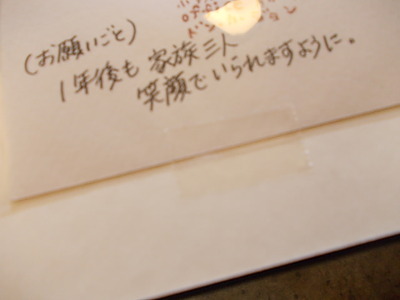 (お願いごと)
1年後も 家族三人
笑顔でいられますように。